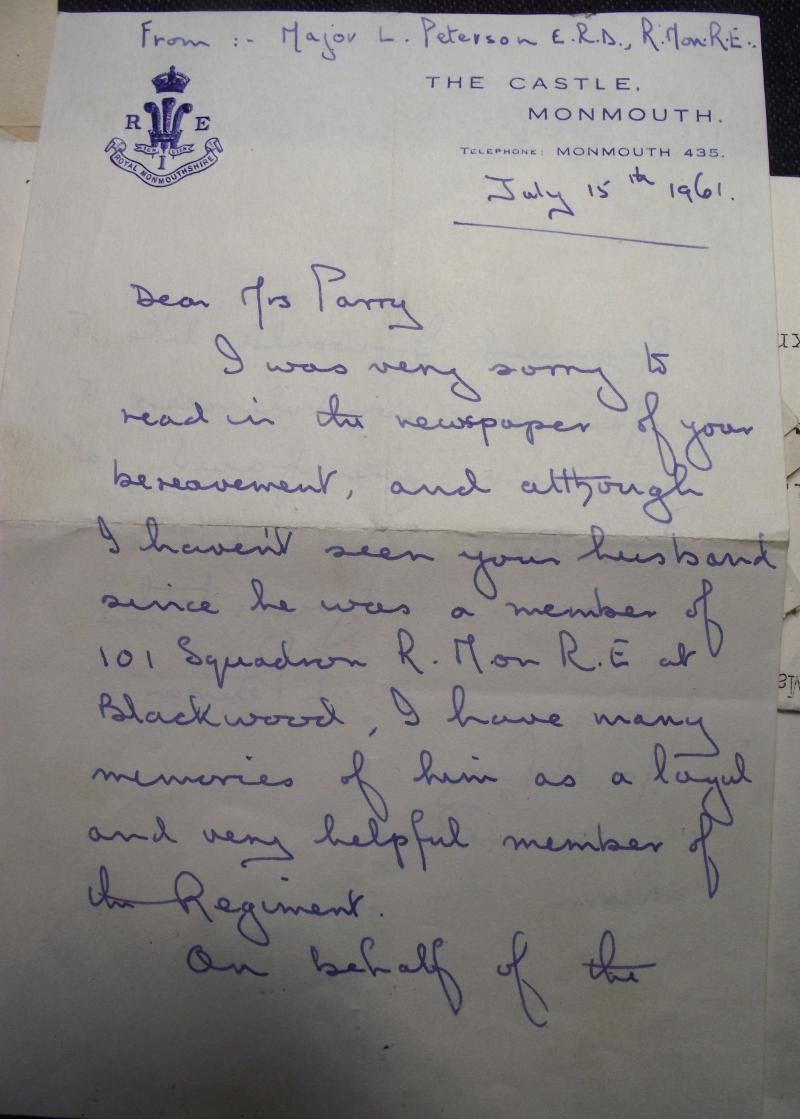 From :- Major L. Peterson E.R.D., R.Mon.R.E.
THE CASTLE,
MONMOUTH.
TELEPHONE: MONMOUTH 435.
R E
I
ROYAL MONMOUTHSHIRE
July 15th 1961.
Dear Mrs Parry
I was very sorry to
read in the newspaper of your
bereavement, and although
I haven't seen your husband
since he was a member of
101 Squadron R.Mon R.E at
Blackwood, I have many
memories of him as a loyal
and very helpful member of
the Regiment.
On behalf of the